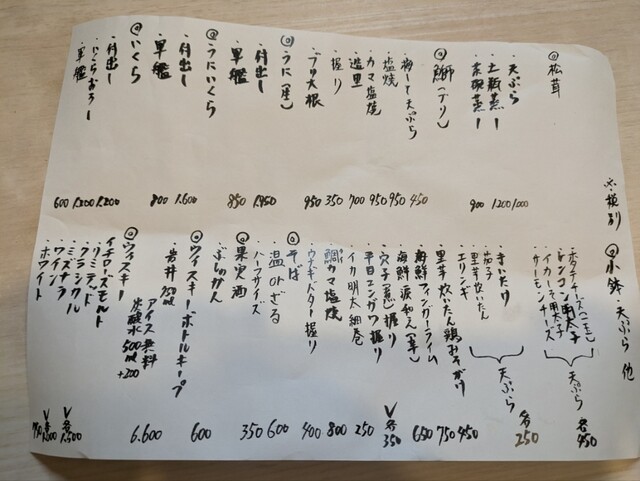 ◎松茸
・天ぷら 1.000
・土瓶蒸し 1200
・茶碗蒸し 900
◎鰤(ブリ)
・梅しそ天ぷら 450
・塩焼 950
・カマ塩焼 950
・造里 700
・握り 350
・ブリ大根 950
◎うに(生)
・付出し 1.950
・軍艦 850
◎うにいくら
・付出し 1.600
・軍艦 800
◎いくら
・付出し 1.200
・いくらおろし 1.200
・軍艦 600
◎小鉢・天ぷら 他
・ポテトチーズ
・レンコン明太子
・イカしそ明太子
・サーモンチーズ
天ぷら 各450
・まいたけ
・茄子
・里芋炊いたん
・エリンギ
天ぷら 各250
・里芋炊いたん鶏みそがけ 450
・海鮮フィンガーライム 750
・海鮮涙和え 650
・穴子(煮)握り
・平目エンガワ握り
各350
・イカ明太細巻 250
・鯛カマ塩焼 800
・ウナギバター握り 400
◎そば
・温orざる 600
・ハーフサイズ 350
◎果実酒
・ぶしゅかん 600
◎ウィスキーボトルキープ
・岩井 750ml 6.600
アイス無料
炭酸水500ml +200
◎ウィスキー
イチローズモルト
・リミテッド
・クラシカル
各1.500
・ミズナラ
・ワイン
・ホワイト